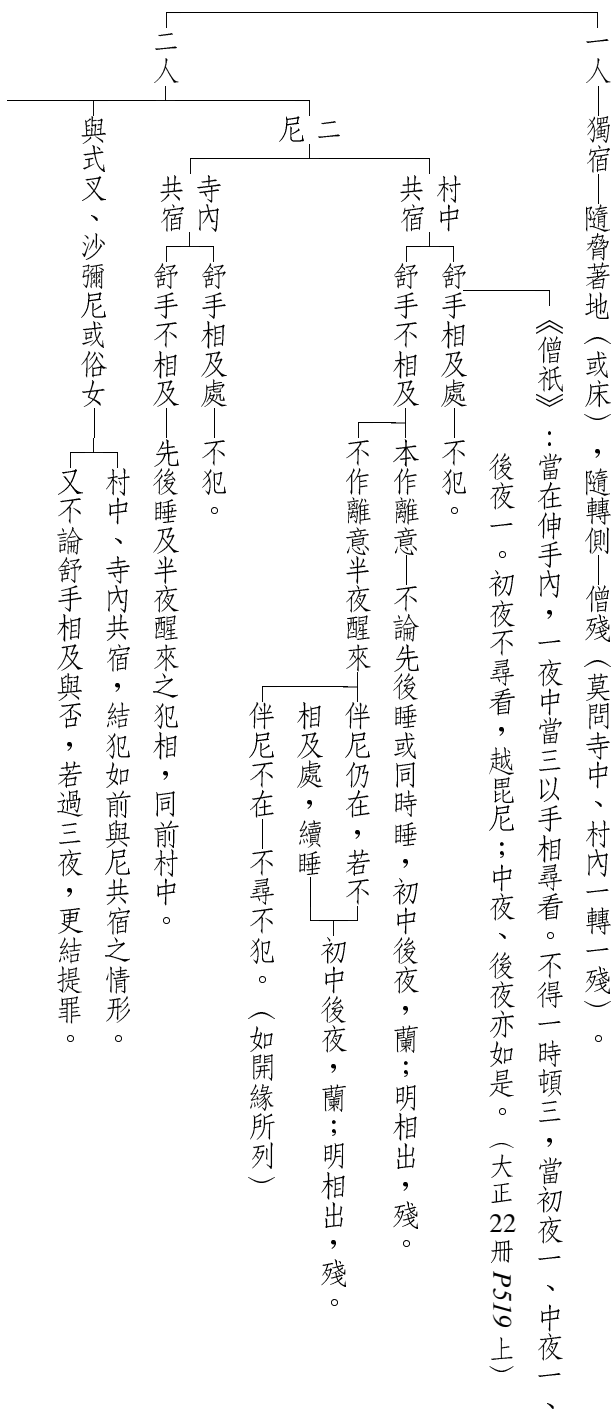 一人
獨宿
隨脅著地（或床），隨轉側
僧殘（莫問寺中、村內一轉一殘）。
二人
二尼
村中共宿
舒手相及處
不犯。
《僧祇》：當在伸手內，一夜中當三以手相尋看。不得一時頓三，當初夜一、中夜一、
後夜一。初夜不尋看，越毘尼；中夜、後夜亦如是。（大正22冊P519上）
舒手不相及
本作離意
不論先後睡或同時睡，初中後夜，蘭；明相出，殘。
不作離意半夜醒來
伴尼仍在，若不
相及處，續睡
初中後夜，蘭；明相出，殘。
伴尼不在
不尋不犯。（如開緣所列）
寺內共宿
舒手相及處
不犯。
舒手不相及
先後睡及半夜醒來之犯相，同前村中。
與式叉、沙彌尼或俗女
村中、寺內共宿，結犯如前與尼共宿之情形。
又不論舒手相及與否，若過三夜，更結提罪。